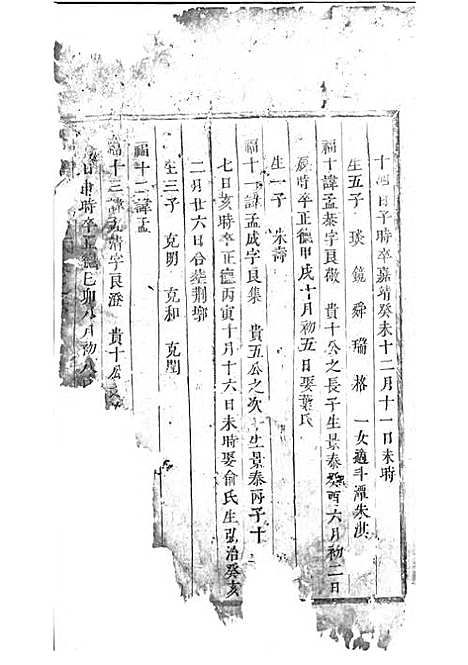 十四日子時卒嘉靖癸未十二月十一日未時
生五子 琰 鏡 舜 瑞 格 一女適斗潭朱淇
福十諱孟泰字良敬 貴十公之長子生景泰癸酉六月初二日
辰時卒正德甲戌十月初五日娶葉氏
生一子 朱壽
福十一諱孟成字良集 貴五公之次 生景泰丙子十
七日亥時卒正德丙寅十月十六日未時娶俞氏生弘治癸亥
二月廿六日合葬荆塢
生三子 克明 克和 克閏
福十二諱孟
福十三諱孟靖字良澄 貴十公
日申時卒正德己卯八月初八